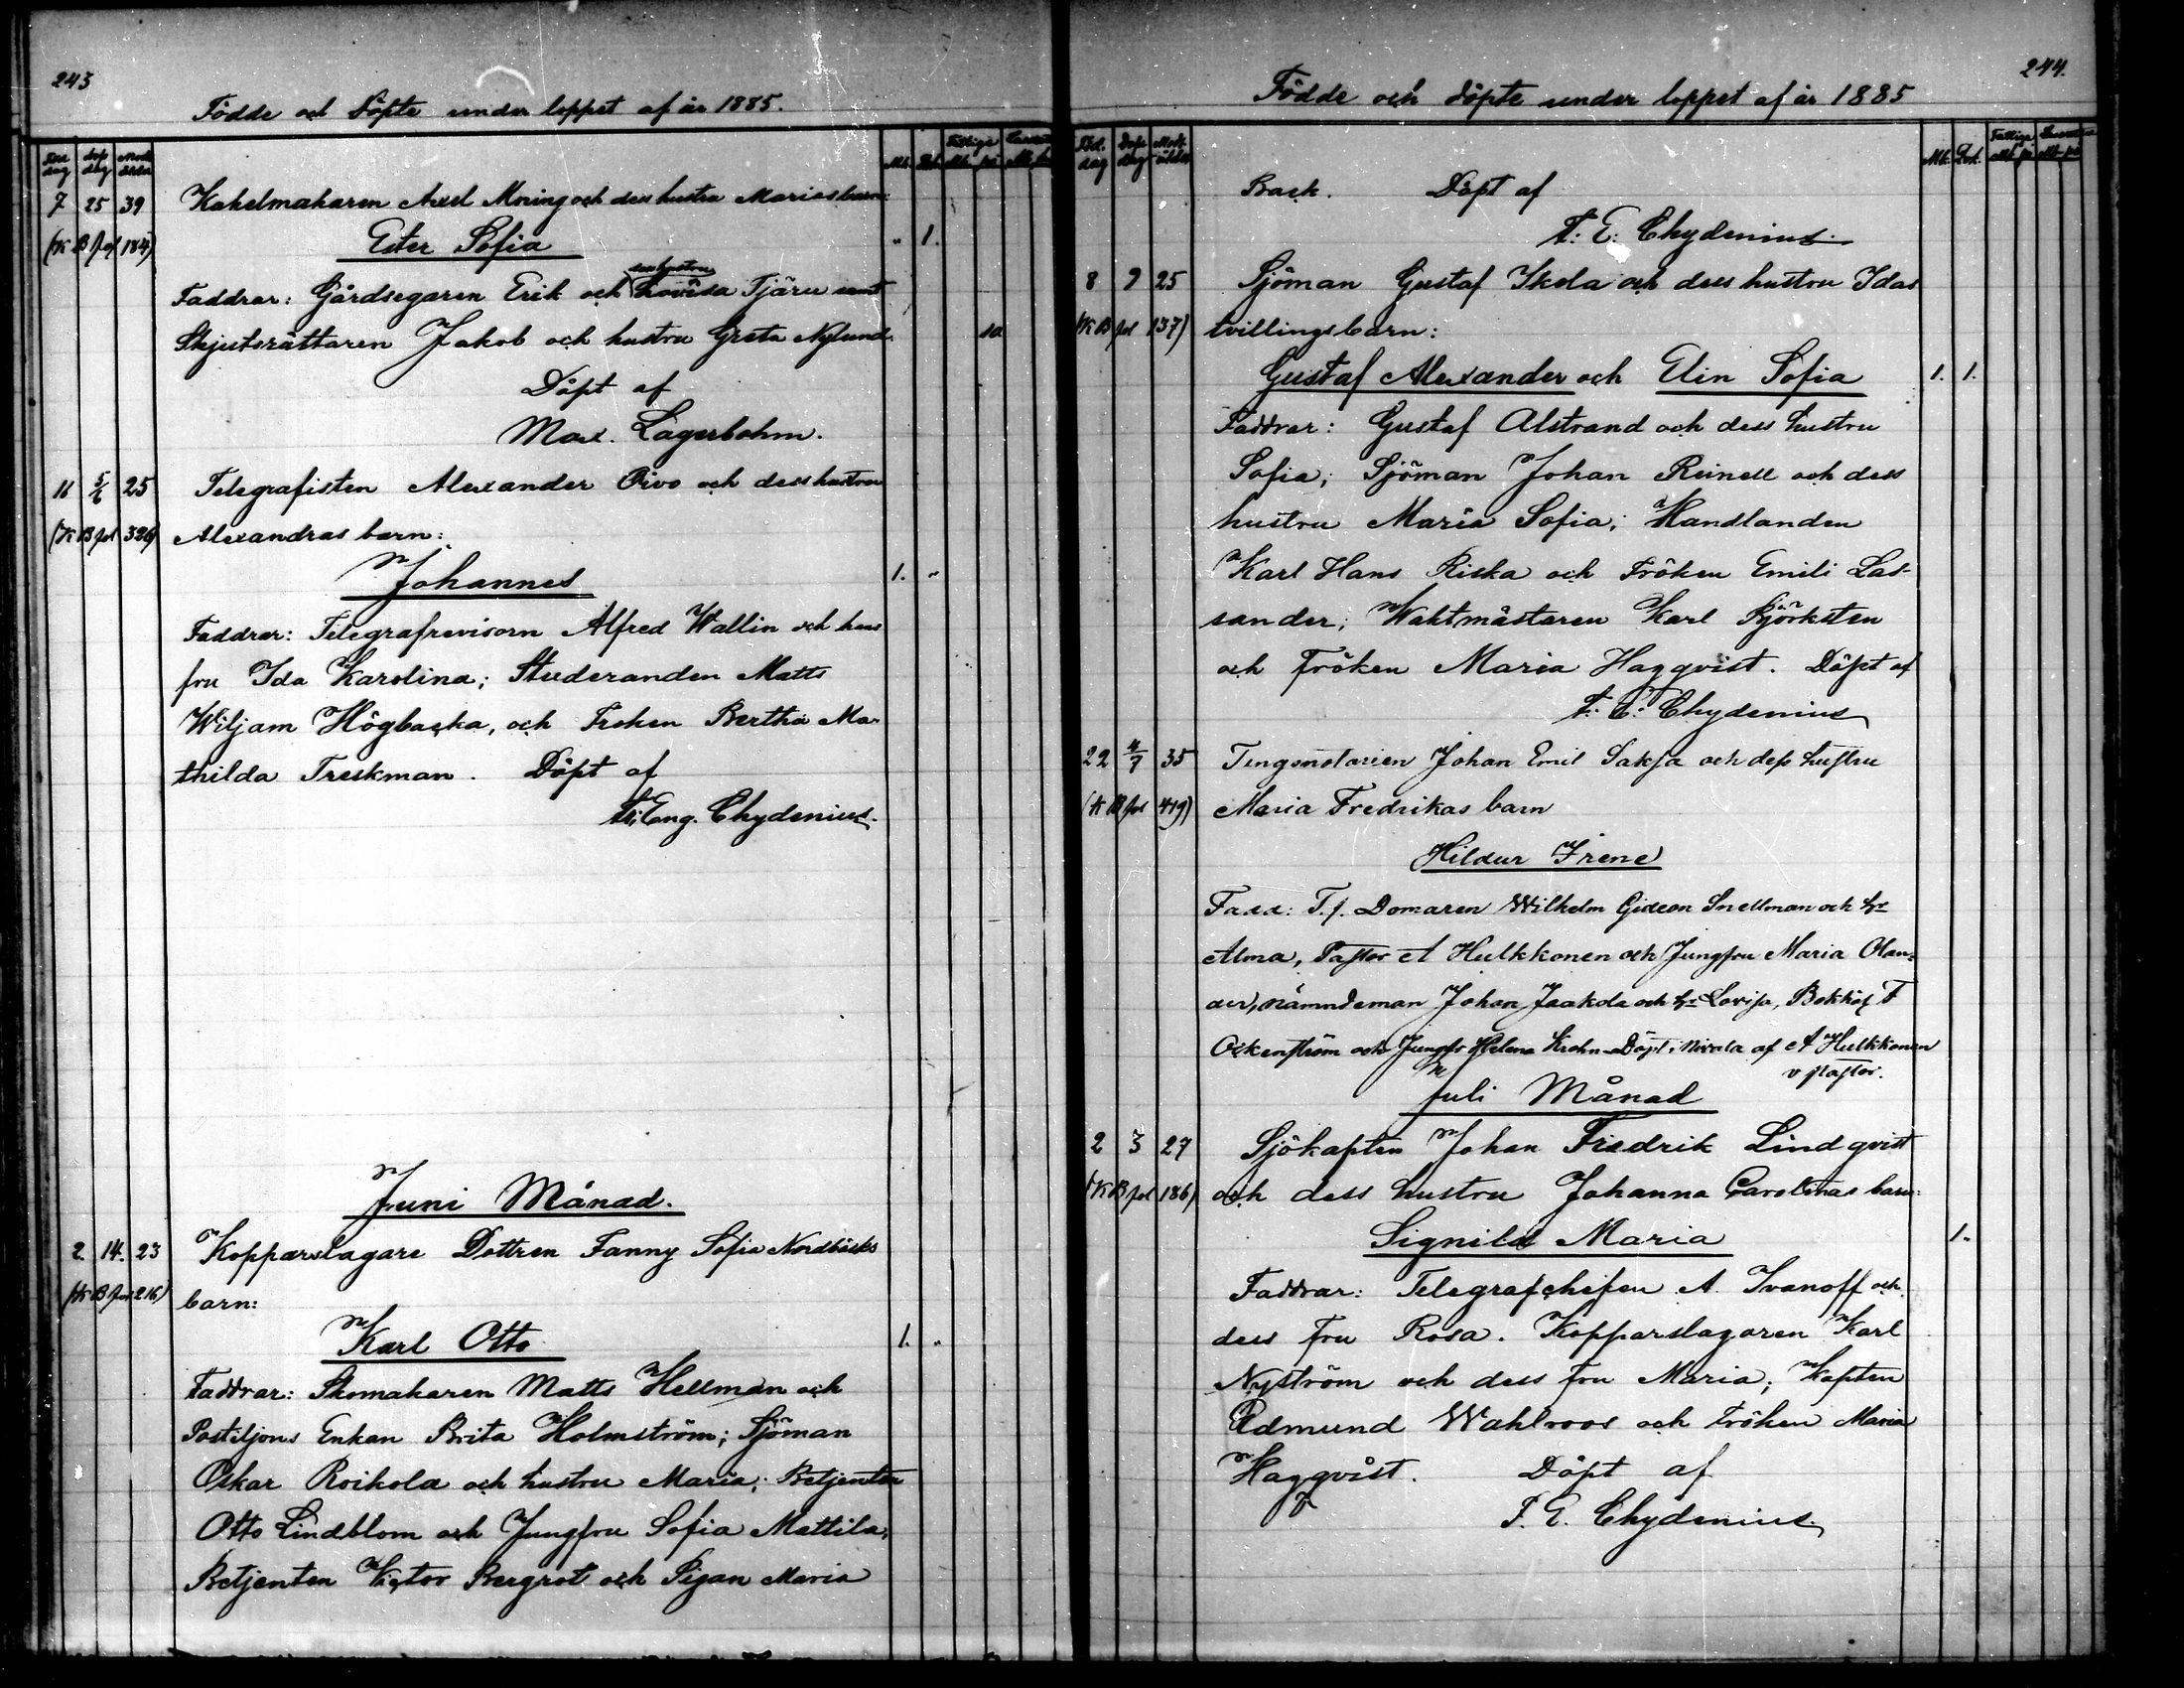 243
Födde och Döpte under loppet af år 1885.
Mk. Qvk. Fattiga
7 25 39 Kakelmakaren Axel Moning och dess hustru Marias barn:
(K B fol 184) Ester Sofia " 1.
dess hustru
Faddrar: Gårdsegaren Erik och Lovisa Tjäru samt
Skjutsrättaren Jakob och hustru Greta Nylund. 10
Döpt af
Max. Lagerbohm.
11 5/6 25 Telegrafisten Alexander Oivo och dess hustru
(K B fol 326) Alexandras barn:
Johannes 1. "
Faddrar: Telegrafrevisorn Alfred Wallin och hans
fru Ida Karolina; Studeranden Matts
Wiljam Högbacka, och Fröken Bertha Ma-
thilda Treskman. Döpt af
Eng. Chydenius.
Juni Månad.
2. 14. 23 Kopparslagare Dottren Fanny Sofia Nordbäcks
(K B fol 216) barn:
Karl Otto 1. "
Faddrar: Skomakaren Matts Hellman och
Postiljons Enkan Brita Holmström; Sjöman
Oskar Roikola och hustru Maria; Betjenten
Otto Lindblom och Jungfru Sofia Mattila,
Betjenten Victor Bergrot och Pigan Maria
244.
Födde och döpte under loppet af år 1885
Föd. dag Döp. dag Mod. ålder Mk. Qvk. Fattiga
Back. Döpt af
F. E. Chydenius.
8 9 25 Sjöman Gustaf Ikola och dess hustru Idas
(K B fol 137) tvillingsbarn:
Gustaf Alexander och Elin Sofia 1. 1.
Faddrar: Gustaf Alstrand och dess hustru
Sofia; Sjöman Johan Reinell och dess
hustru Maria Sofia; Handlanden
Karl Hans Riska och Fröken Emili Las-
sander; Waktmästaren Karl Björksten
och Fröken Maria Hagqvist. Döpt af
F. E. Chydenius
22 4/7 35 Tingsnotarien Johan Emil Saksa och dess hustru
(K B fol 419) Maria Fredrikas barn
Hildur Irene
Fadd: T.f. Domaren Wilhelm Gideon Snellman och hr
Alma, Pastor A Hulkkonen och Jungfru Maria Olan-
der, nämndeman Johan Jaakola och hr Lovisa, Bokhåll F
Oskenström och Jungfr Helena Krohn Döpt i Nivala af A Hulkkonen
v pastor.
Juli Månad
2 3 27 Sjökapten Johan Fredrik Lindqvist
(K B fol 186) och dess hustru Johanna Carolinas barn:
Signild Maria 1.
Faddrar: Telegrafchefen A. Ivanoff och
dess fru Rosa. Kopparslagaren Karl
Nyström och dess fru Maria; Kapten
Edmund Wahlroos och Fröken Maria
Hagqvist. Döpt af
F. E. Chydenius